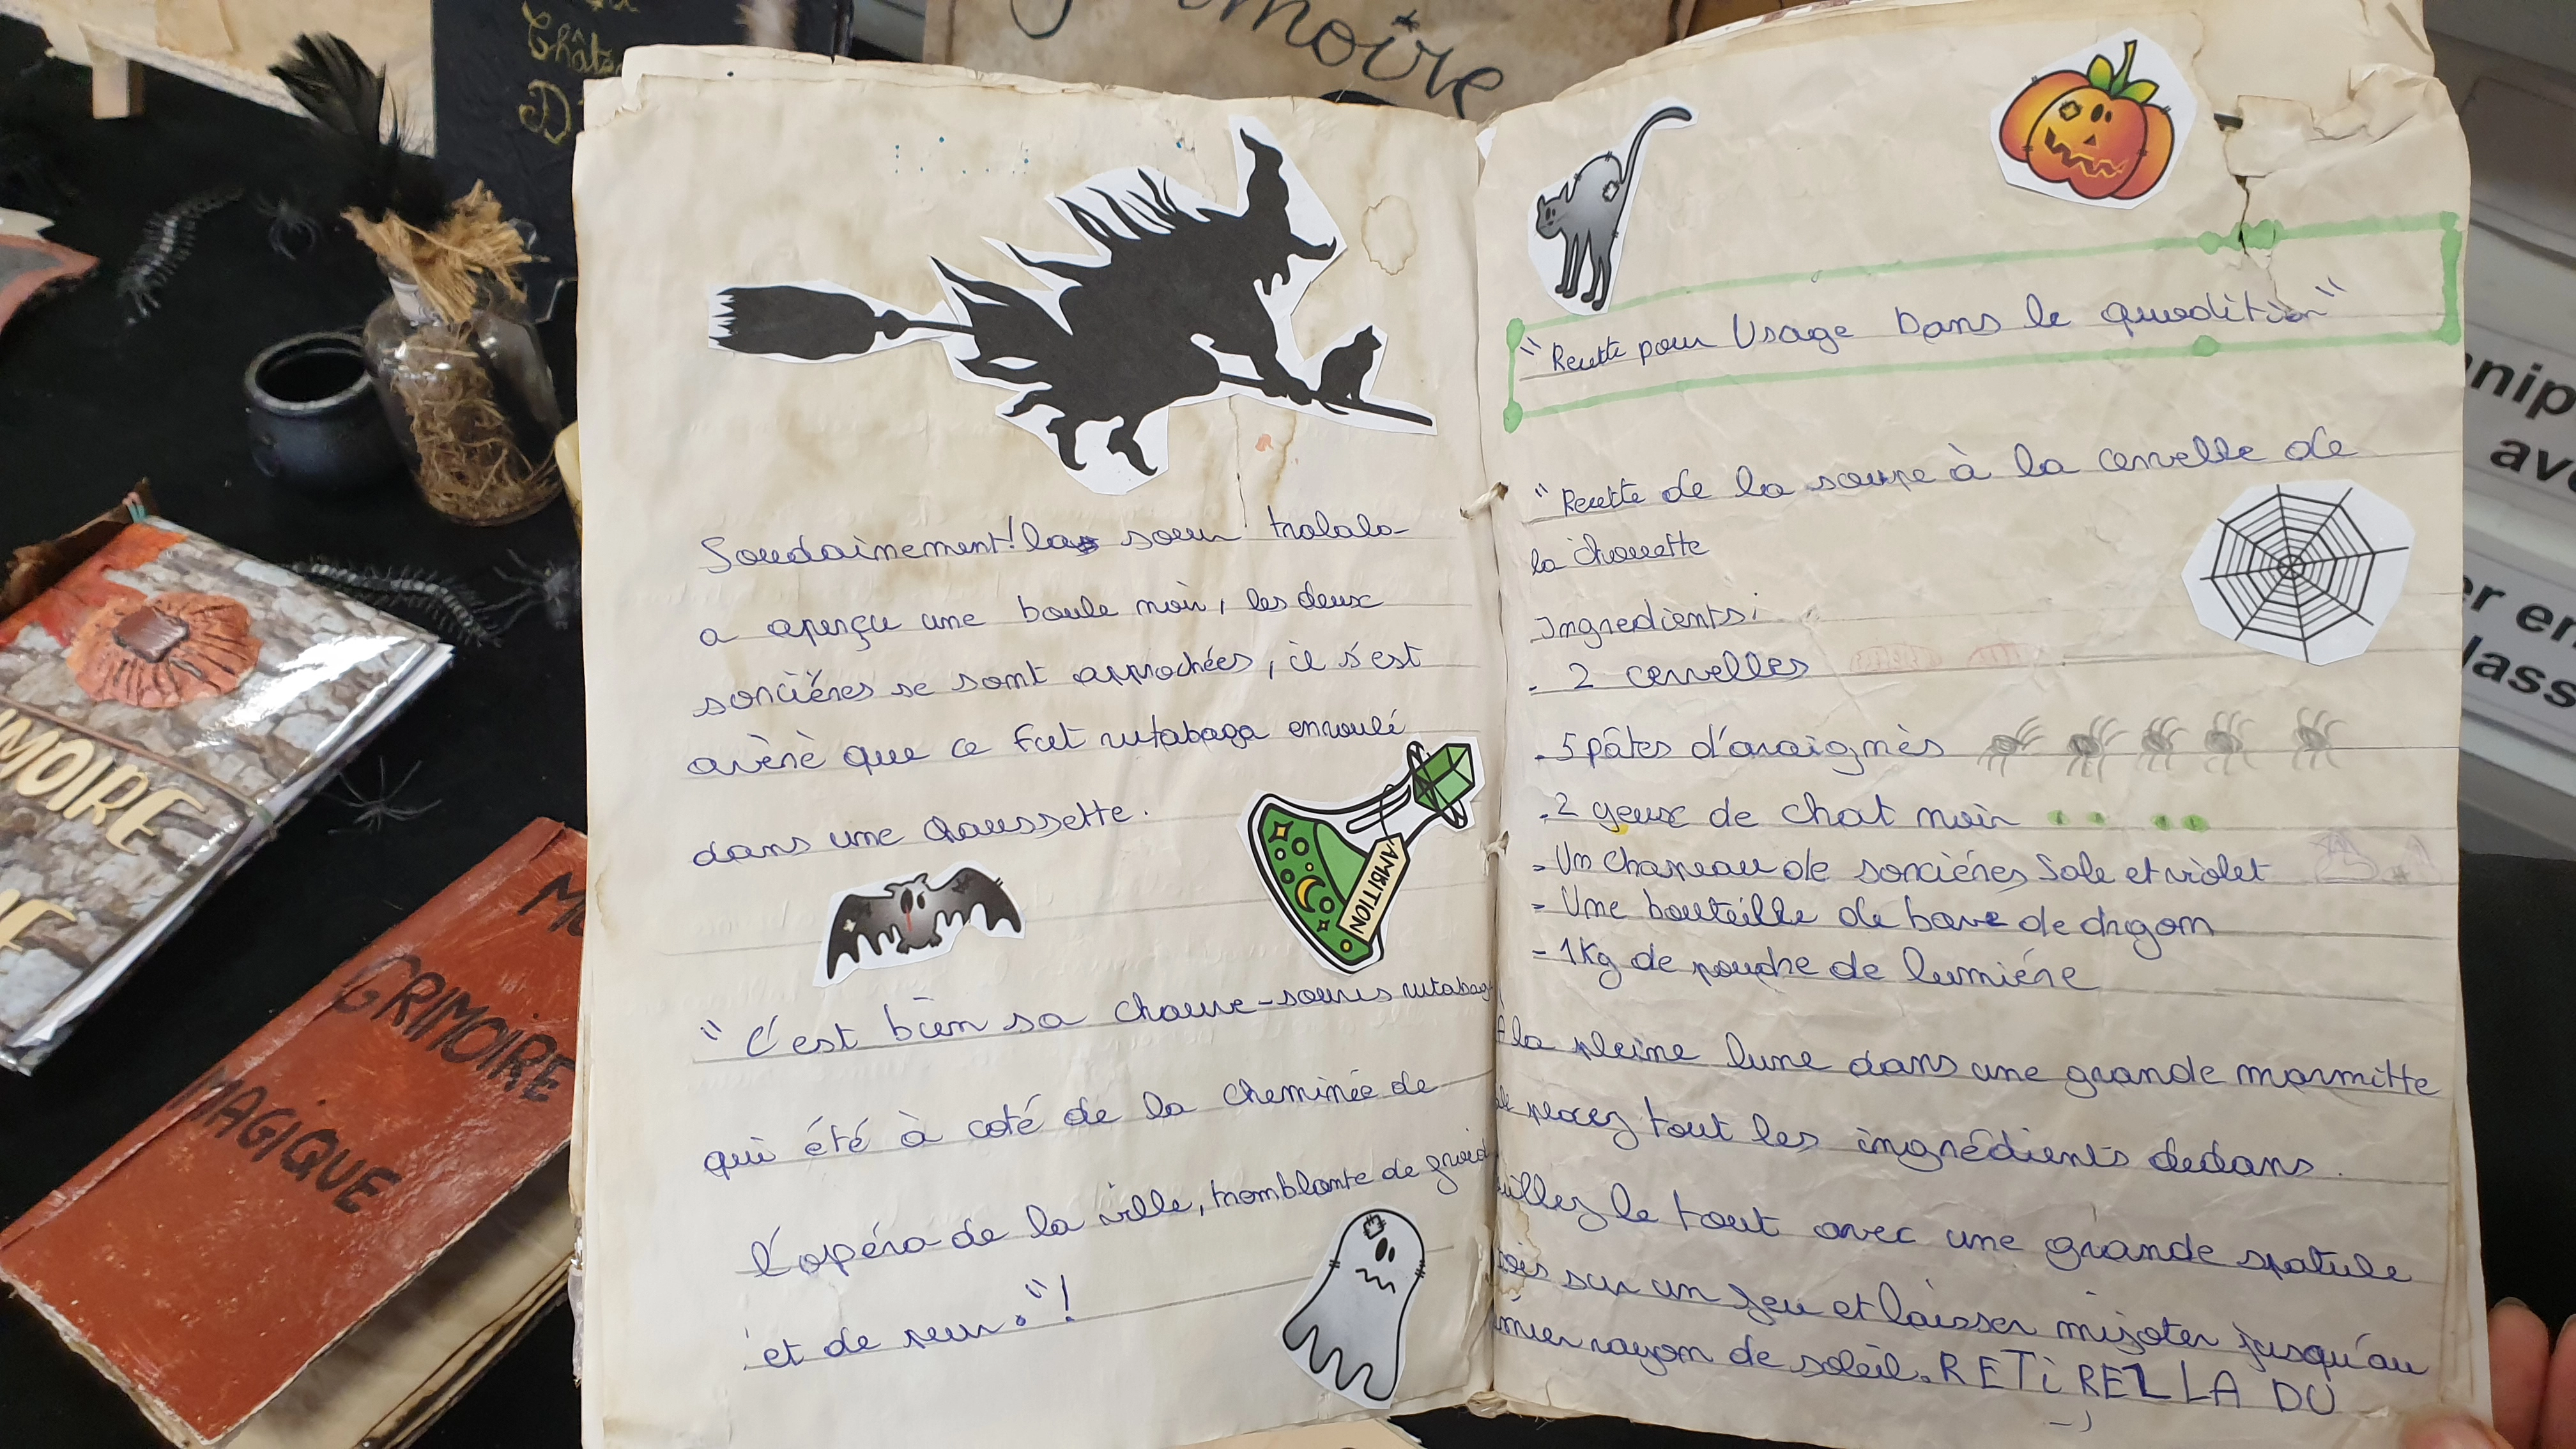 Grimoire
Soudainement! la sœur tralala
a aperçu une boule noir, les deux
sorciéres se sont approchées, il s'est
avèrè que ce fut rutabaga enroulé
dans une chaussette.
AMBITION
"C'est bien sa chauve-souris rutabag
qui été à coté de la cheminée de
l'opéra de la ville, tremblante de groid
et de peur."!
"Recette pour Usage Dans le quodition"
"Recette de la soupe à la cervelle de
la chouette
Ingredients:
- 2 cervelles
- 5 pâtes d'araignès
- 2 yeux de chat noir
- Un chapeau de sorciéres Sale et violet
- Une bouteille de bave de dragon
- 1Kg de poudre de lumiére
A la pleine lune dans une grande marmitte
placez tout les ingrédients dedans.
uillez le tout avec une grande spatule
ois sur un feu et laisser mijoter jusqu'au
mier rayon de soleil. RETIREZ LA DU
MOIRE
GRIMOIRE
MAGIQUE